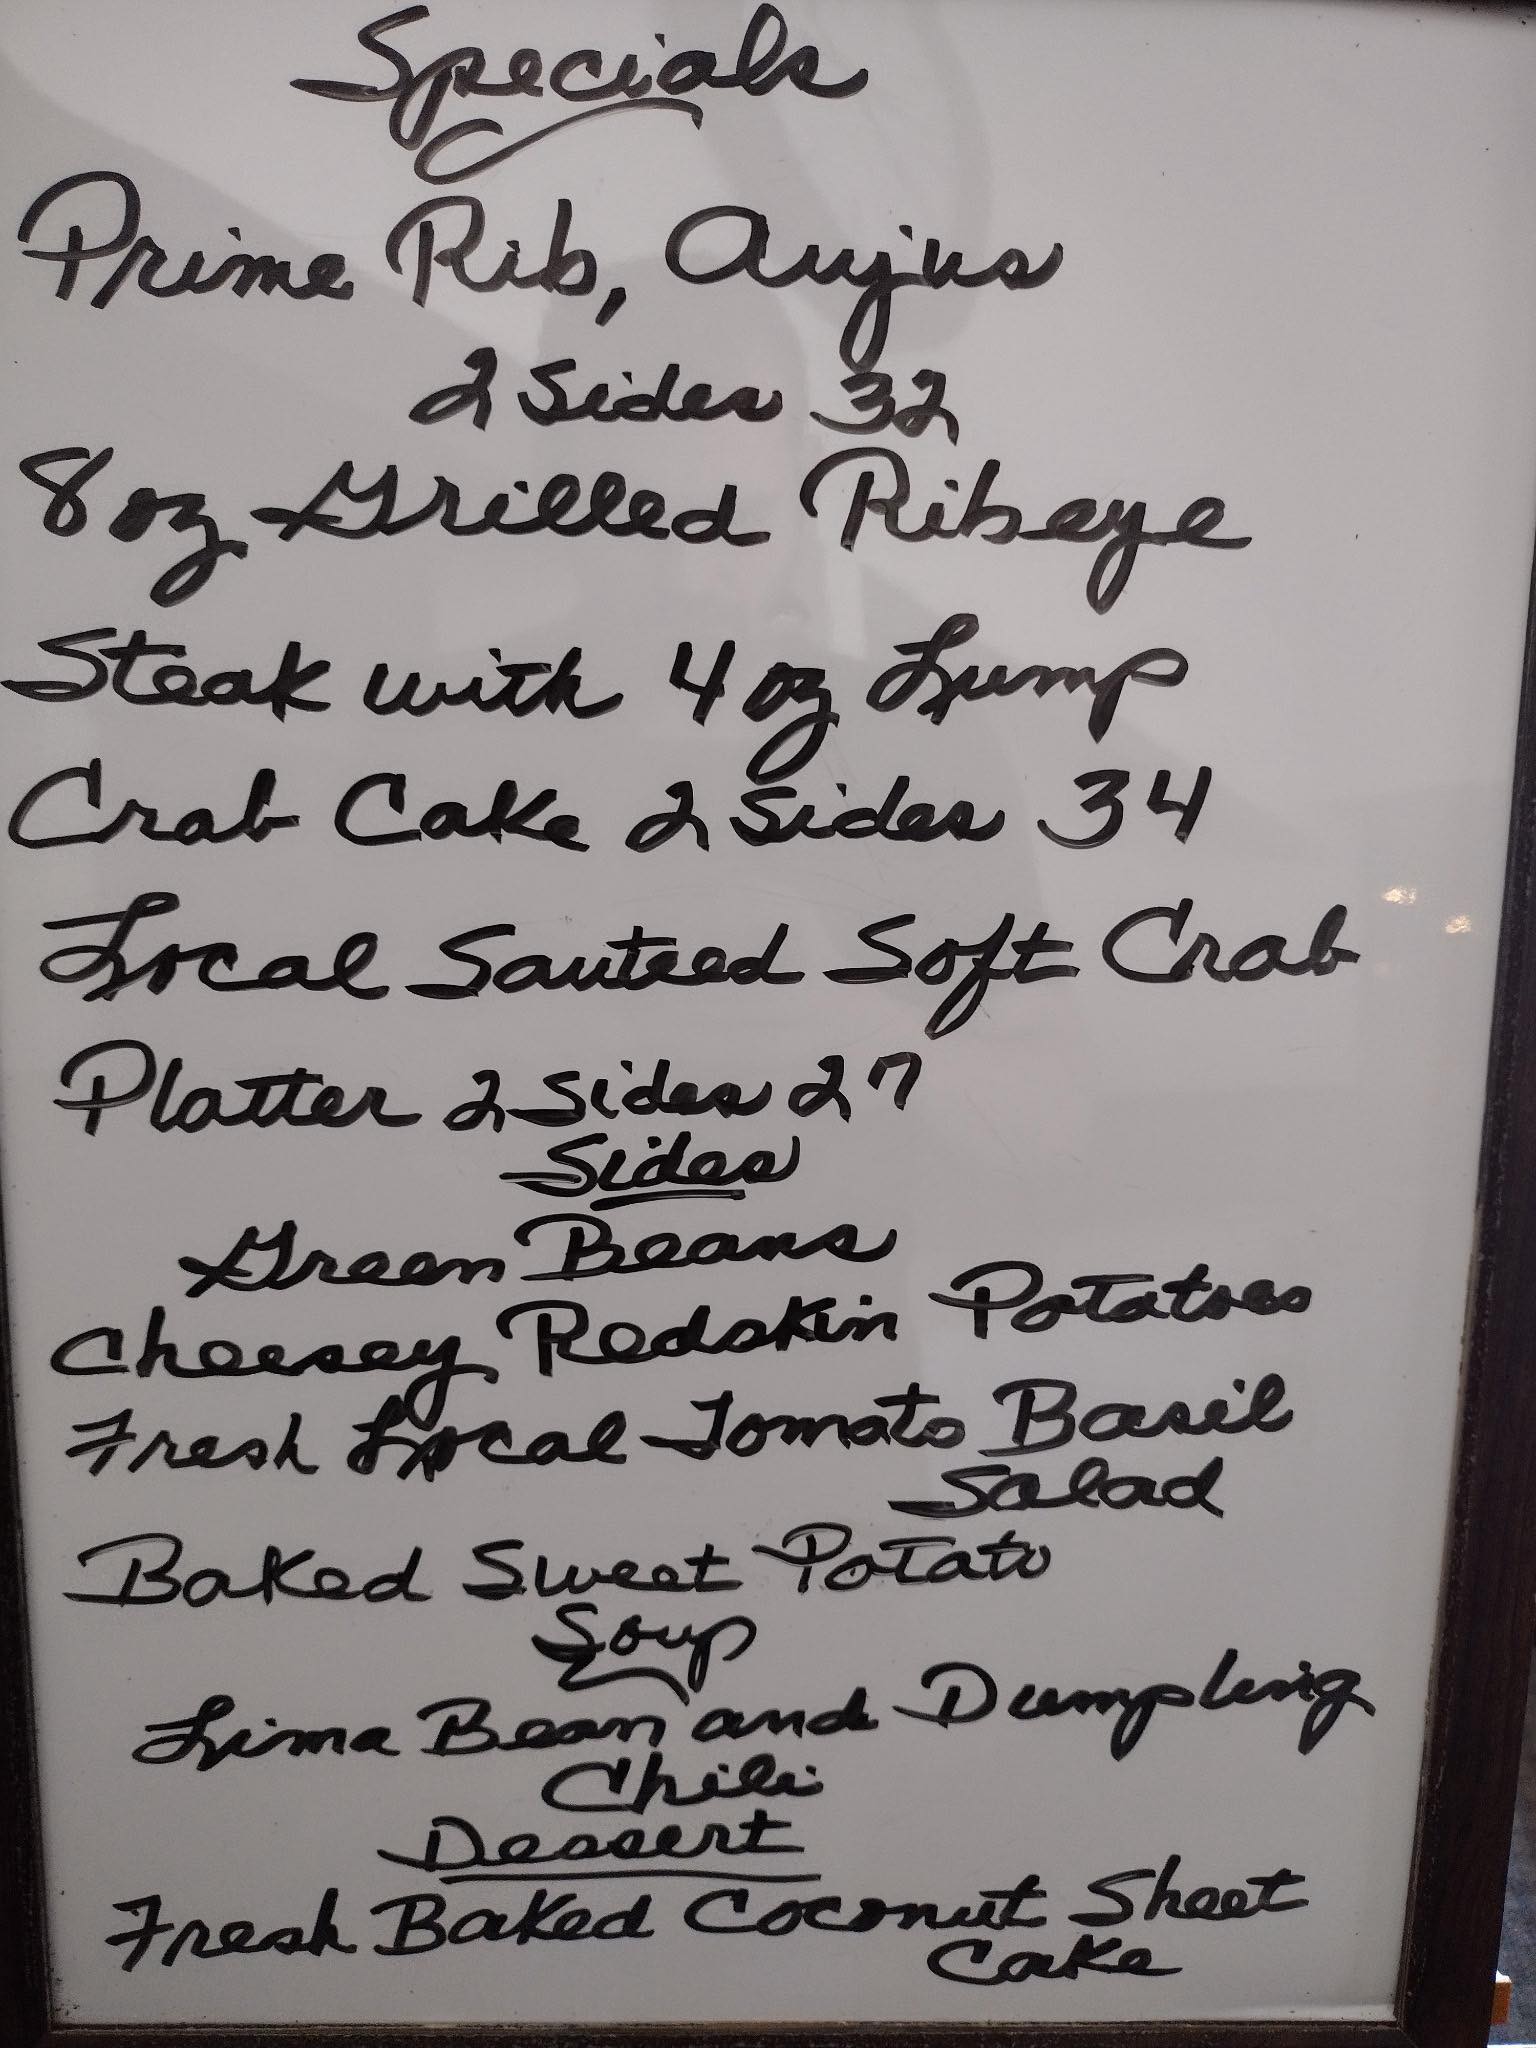 Specials
Prime Rib, Aujus
2 Sides 32
8 oz Grilled Ribeye
Steak with 4 oz Lump
Crab Cake 2 Sides 34
Local Sauteed Soft Crab
Platter 2 Sides 27
Sides
Green Beans
Cheesey Redskin Potatoes
Fresh Local Tomato Basil
Salad
Baked Sweet Potato
Soup
Lima Bean and Dumpling
Chili
Dessert
Fresh Baked Coconut Sheet
Cake